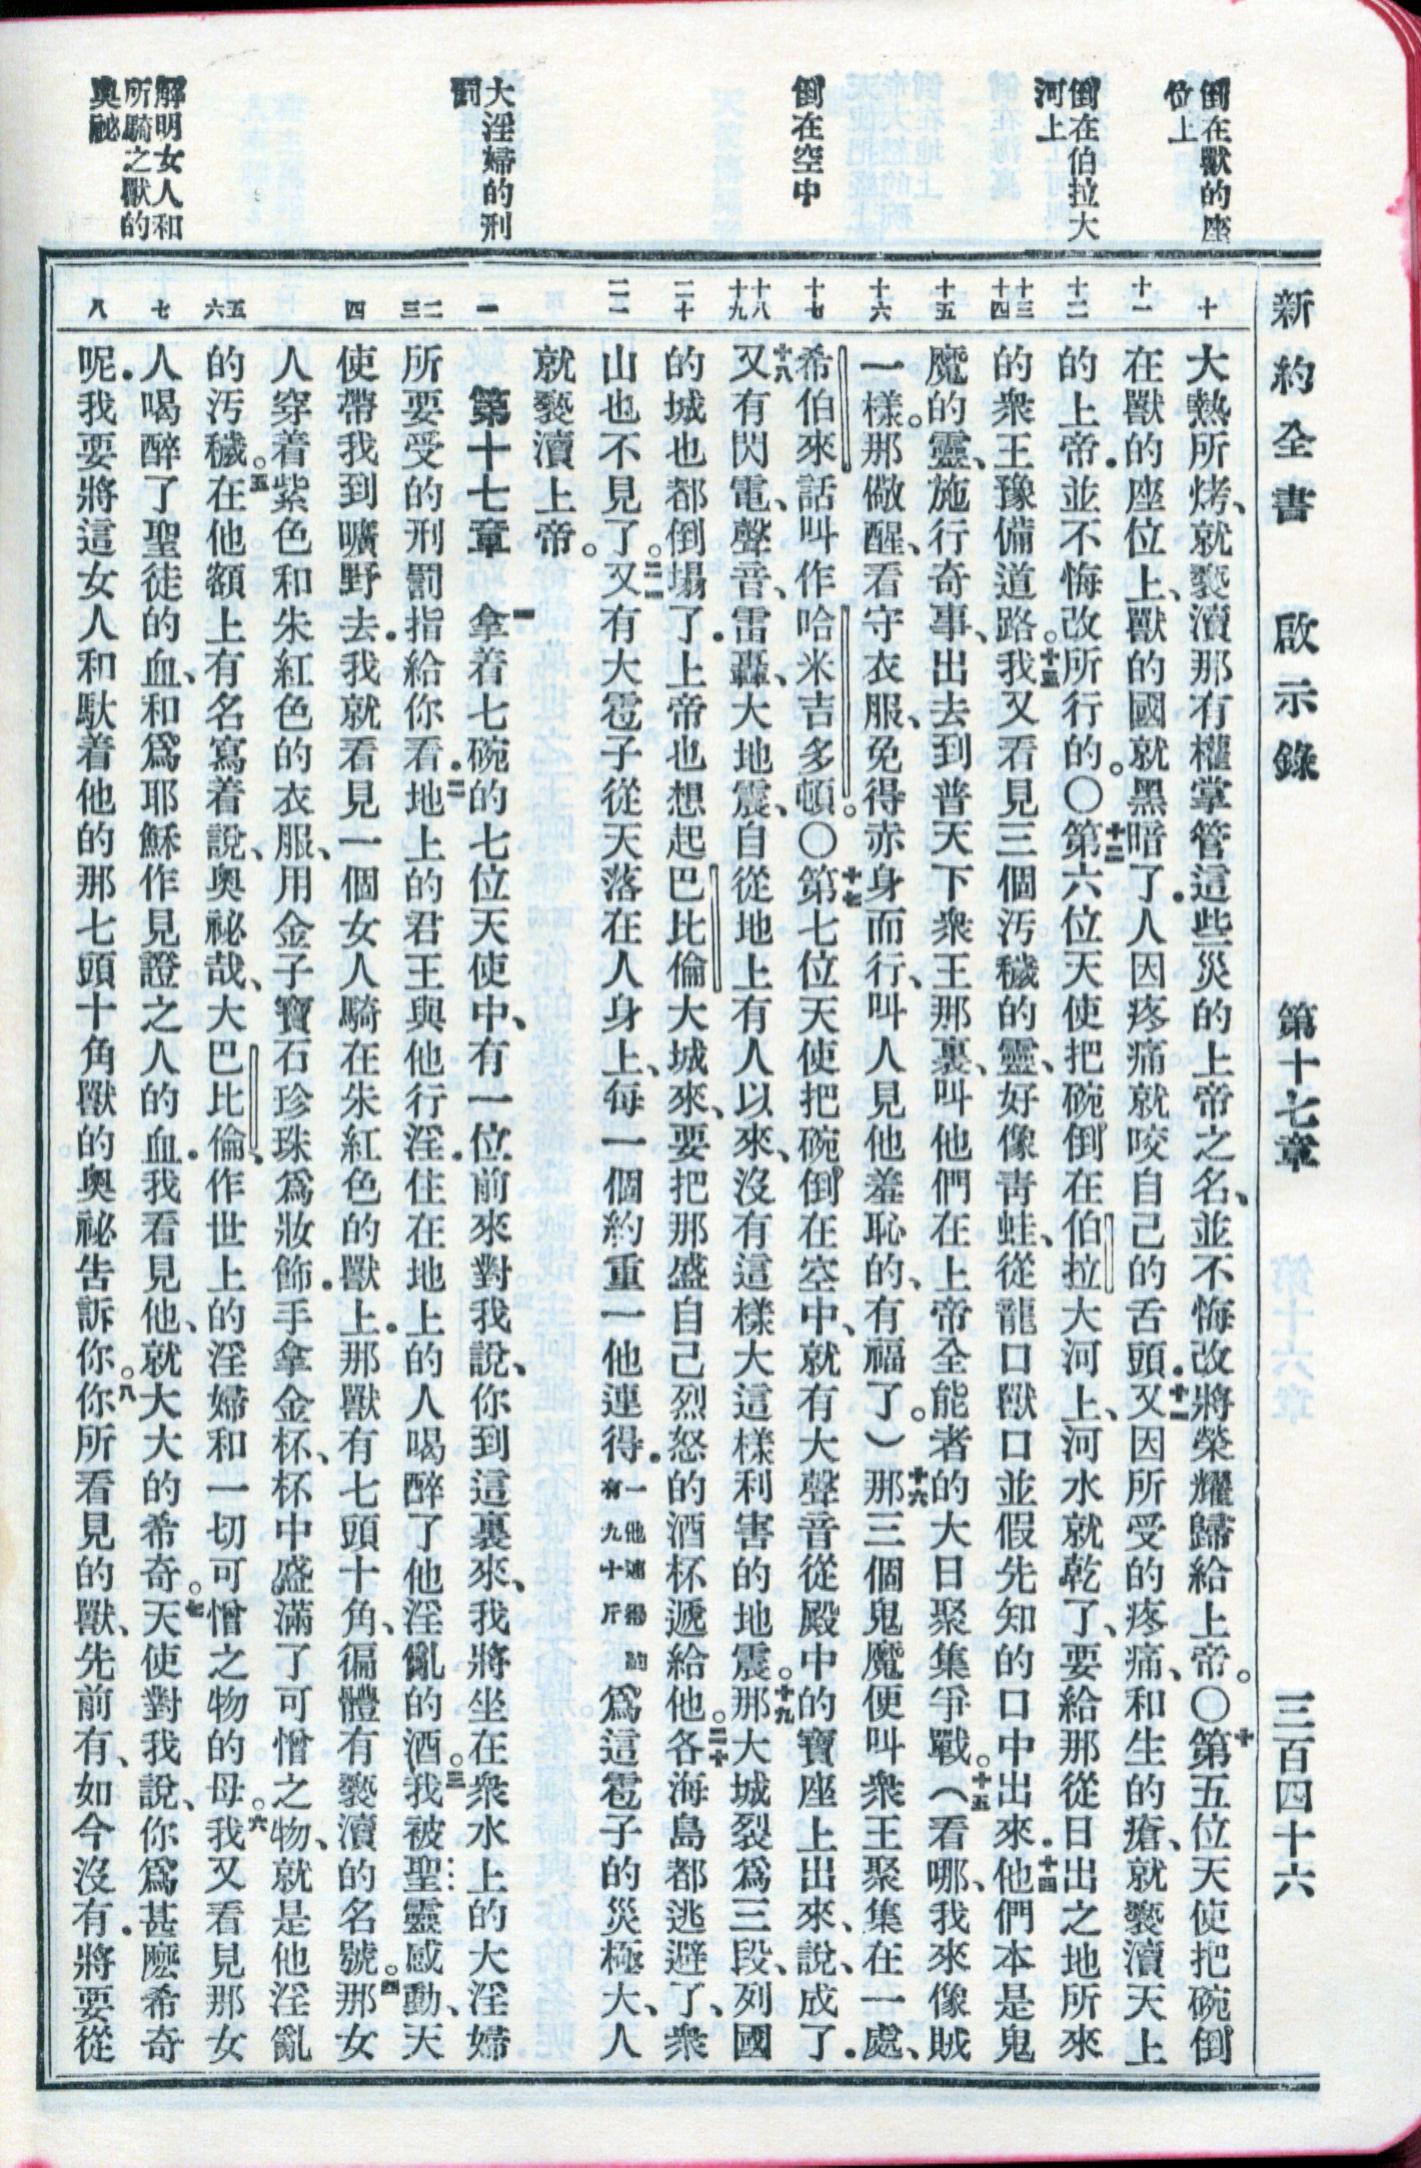 新約全書 啟示錄 第十七章 三百四十六
倒在獸的座
位上
倒在伯拉大
河上
倒在空中
大淫婦的刑
罰
解明女人和
所騎之獸的
奧祕
十
十一
十二
十三
十四
十五
十六
十七
十八
十九
二十
二一
一
二
三
四
五
六
七
八
大熱所烤、就褻瀆那有權掌管這些災的上帝之名、並不悔改將榮耀歸給上帝。〇十第五位天使把碗倒
在獸的座位上、獸的國就黑暗了．人因疼痛就咬自己的舌頭．十一又因所受的疼痛、和生的瘡、就褻瀆天上
的上帝．並不悔改所行的。〇十二第六位天使把碗倒在伯拉大河上、河水就乾了、要給那從日出之地所來
的衆王豫備道路。十三我又看見三個污穢的靈、好像青蛙、從龍口獸口並假先知的口中出來．十四他們本是鬼
魔的靈、施行奇事、出去到普天下衆王那裏、叫他們在上帝全能者的大日聚集爭戰。十五（看哪、我來像賊
一樣。那儆醒、看守衣服、免得赤身而行、叫人見他羞恥的、有福了。）十六那三個鬼魔便叫衆王聚集在一處、
希伯來話叫作哈米吉多頓。〇十七第七位天使把碗倒在空中、就有大聲音從殿中的寶座上出來、說、成了．
十八又有閃電、聲音、雷轟、大地震、自從地上有人以來、沒有這樣大這樣利害的地震。十九那大城裂爲三段、列國
的城也都倒塌了．上帝也想起巴比倫大城來、要把那盛自己烈怒的酒杯遞給他。二十各海島都逃避了、衆
山也不見了。二一又有大雹子從天落在人身上、每一個約重一他連得．一他連得約有九十斤爲這雹子的災極大、人
就褻瀆上帝。
第十七章 一拿着七碗的七位天使中、有一位前來對我說、你到這裏來、我將坐在衆水上的大淫婦
所要受的刑罰指給你看．二地上的君王與他行淫．住在地上的人喝醉了他淫亂的酒。三我被聖靈感動、天
使帶我到曠野去．我就看見一個女人騎在朱紅色的獸上．那獸有七頭十角、徧體有褻瀆的名號。四那女
人穿着紫色和朱紅色的衣服、用金子寶石珍珠爲妝飾．手拿金杯、杯中盛滿了可憎之物、就是他淫亂
的污穢。五在他額上有名寫着說、奧祕哉、大巴比倫、作世上的淫婦和一切可憎之物的母。六我又看見那女
人喝醉了聖徒的血、和爲耶穌作見證之人的血．我看見他、就大大的希奇。七天使對我說、你爲甚麽希奇
呢．我要將這女人和馱着他的那七頭十角獸的奧祕告訴你。八你所看見的獸、先前有、如今沒有．將要從